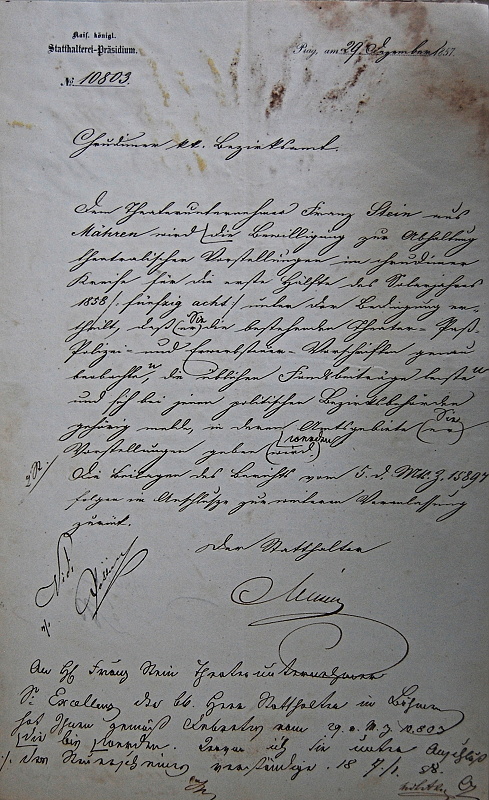 Kais. königl.
Statthalterei-Präsidium.
№ 10803.
Prag, am 29 Dezember 1857.
Chrudimer kk. Bezirksamt.
Dem Theaterunternehmer Franz Stein aus
Mähren wird die Bewilligung zur Abhaltung
theatralischer Vorstellungen im chrudimer
Kreise für die erste Hälfte des Solarjahres
1858 /: fünfzig acht/ unter der Bedingung er-
theilt, daß (er) Sie die bestehenden Theater- Paß-
Polizei- und Erwerbsteuer- Vorschriften genau
beobachten, die üblichen Fondsbeiträge leisten
und sich bei jenen politischen Bezirksbehörden
gehörig melde, in deren Amtsgebiete (er) Sie
Vorstellungen geben (wird) werden
Die Beilagen des Berichts vom 5. d. Mts. Z. 15897
folgen im Anschluße zur weitern Veranlassung
zurück.
Der Statthalter
An H Franz Stein Theaterunternehmer
Sr Excellenz der kk. Herr Statthalter in Böhmen
hat Ihnen gemäß vom 29. v. M. Z. 10.803
die bis werden. ich Sie unter Anschluß
der verständige. 18 7/1 58.